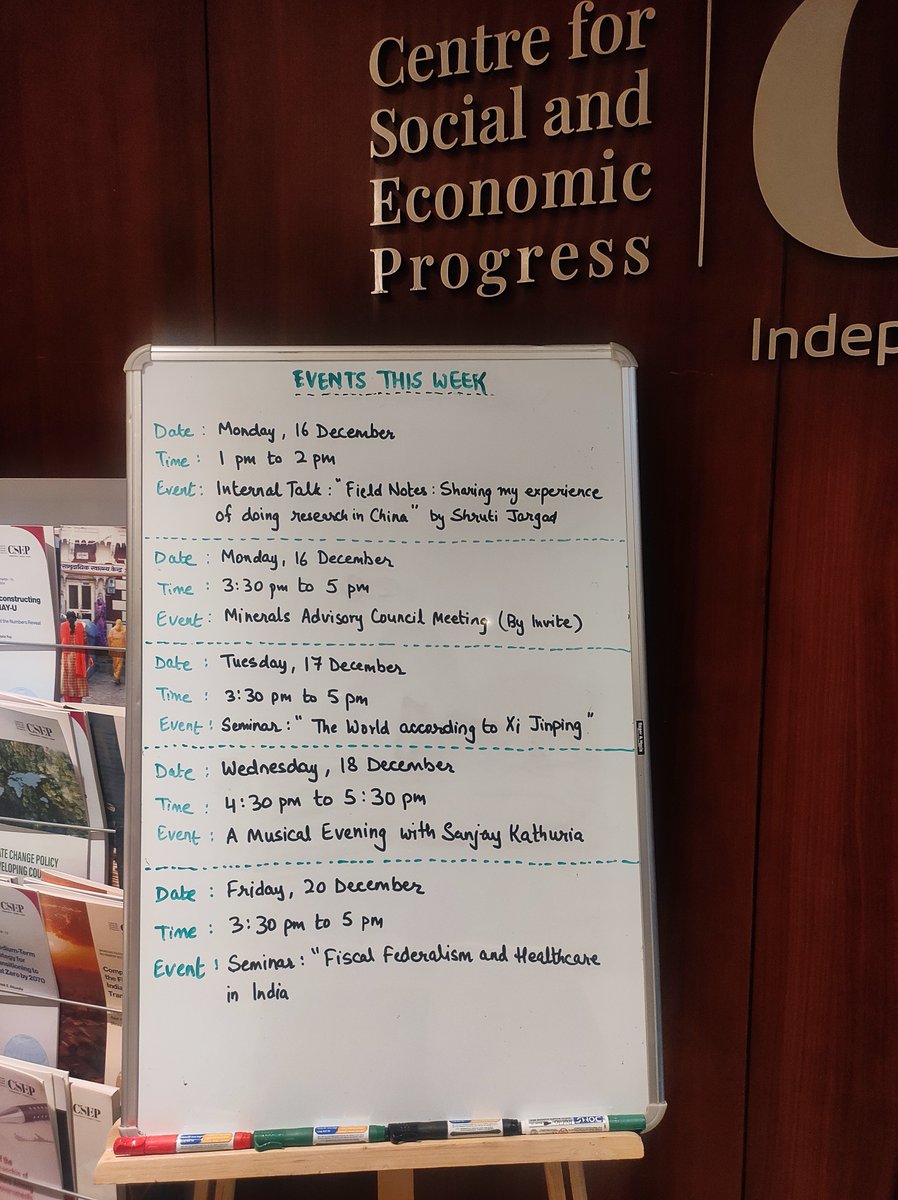 Centre for
Social and
Economic
Progress
Indep
EVENTS THIS WEEK
Date : Monday, 16 December
Time : 1 pm to 2 pm
Event : Internal Talk : "Field Notes : Sharing my experience
of doing research in China" by Shruti Jargad
Date : Monday, 16 December
Time : 3:30 pm to 5 pm
Event : Minerals Advisory Council Meeting (By Invite)
Date : Tuesday, 17 December
Time : 3:30 pm to 5 pm
Event : Seminar : " The World according to Xi Jinping "
Date : Wednesday, 18 December
Time : 4:30 pm to 5:30 pm
Event : A Musical Evening with Sanjay Kathuria
Date : Friday, 20 December
Time : 3:30 pm to 5 pm
Event : Seminar : "Fiscal Federalism and Healthcare
in India
CSEP
constructing
AY-U
the Numbers Reveal
सामुदायिक स्वास्थ्य केन्द्र
CSEP
ATE CHANGE POLICY
VELOPING COU
CSEP
edium-Term
ategy for
nsitioning to
t Zero by 2070
Comp
the Fi
India
Tran
CSEP
CSEP